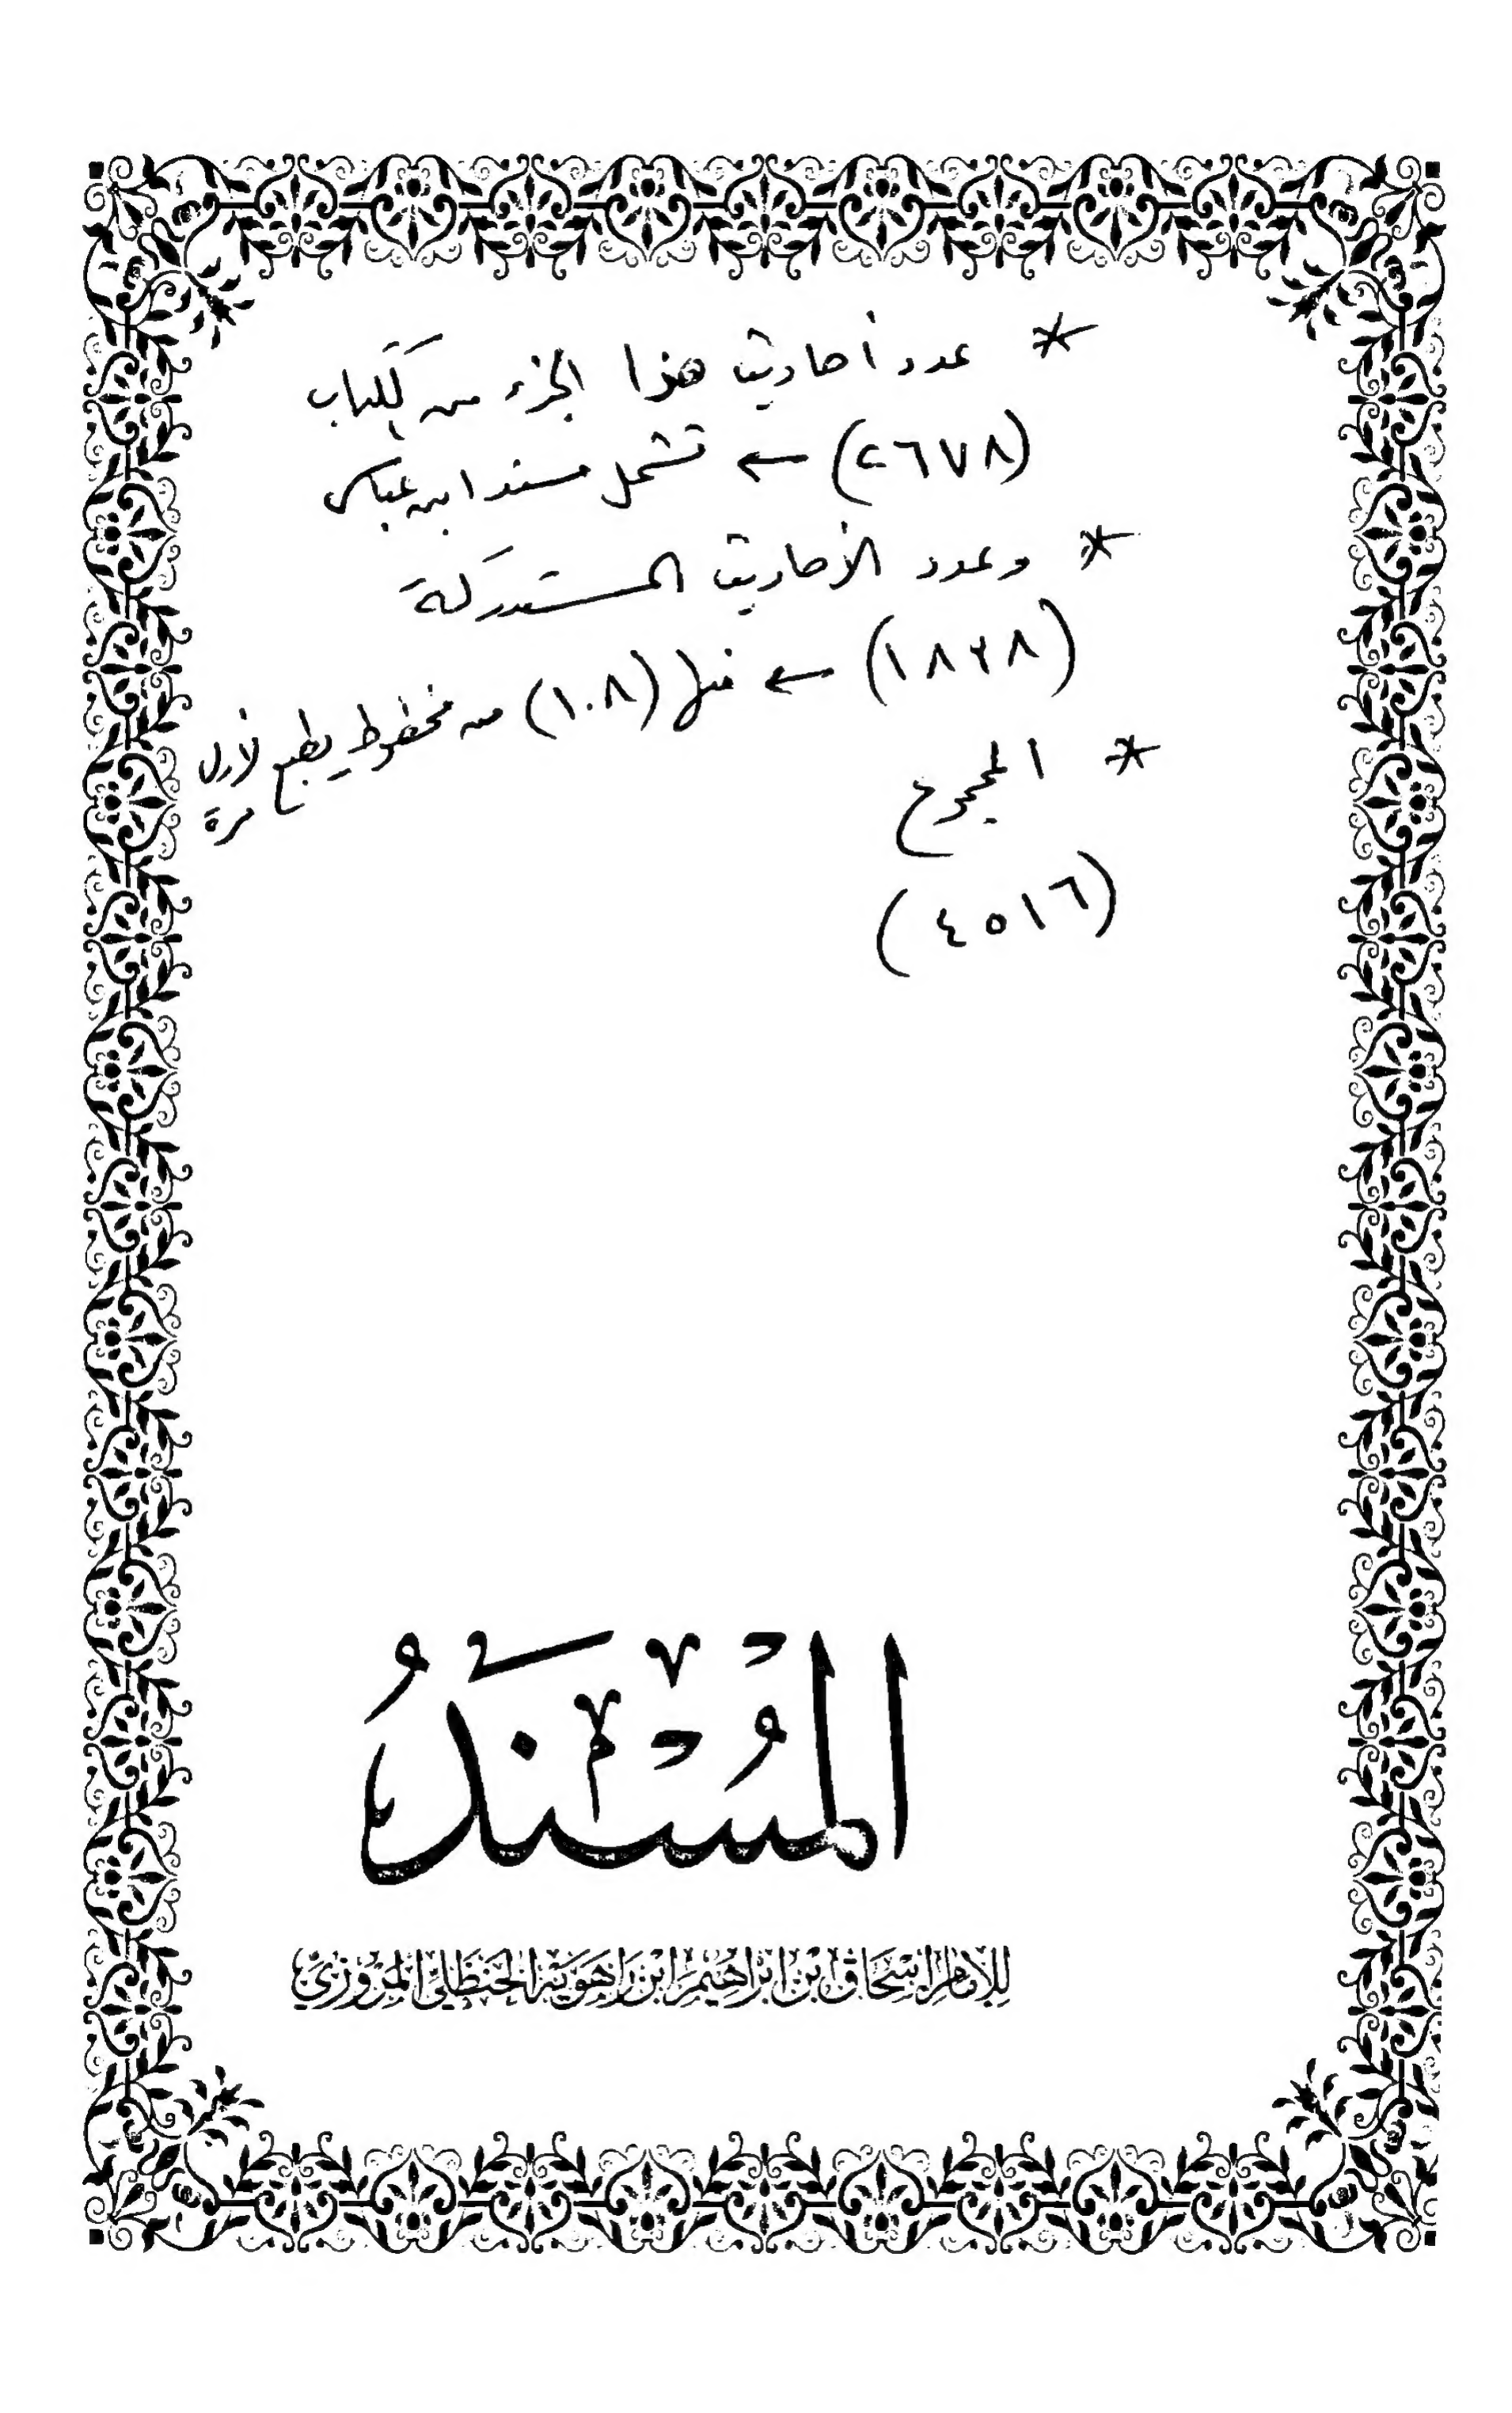 * عدد أحاديث هذا الجزء من الكتاب
(٢٦٧٨) ← تشمل مسند ابن عباس
* وعدد الأحاديث المستدركة
(١٨٣٨) ← منها (١٠٨) من مخطوط يطبع لأول
مرة
* المجموع
(٤٥١٦)
المُسْنَدُ
لِلإِمَامِ إِسْحَاقَ بْنِ إِبْرَاهِيْمَ ابْنِ رَاهَوَيْهِ الحَنْظَلِيِّ المَرْوَزِيِّ